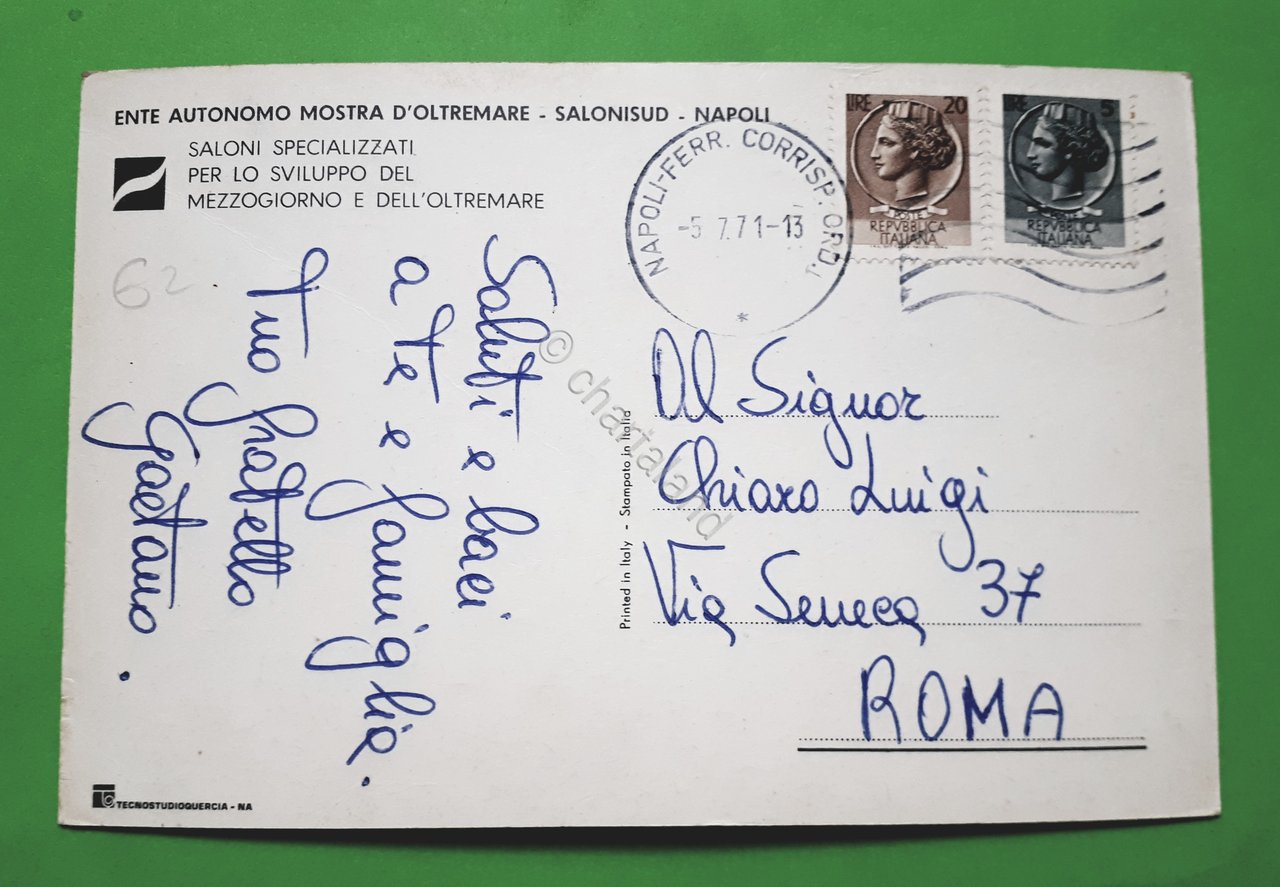 ENTE AUTONOMO MOSTRA D'OLTREMARE - SALONISUD - NAPOLI
SALONI SPECIALIZZATI
PER LO SVILUPPO DEL
MEZZOGIORNO E DELL'OLTREMARE
62
Saluti e baci
a te e famiglia.
Tuo fratello
Gaetano.
TECNOSTUDIOQUERCIA - NA
Printed in Italy - Stampato in Italia
NAPOLI-FERR. CORRISP. ORD.
-5 7.71-13
LIRE 20
POSTE
REPVBBLICA
ITALIANA
LIRE 5
POSTE
REPVBBLICA
ITALIANA
Al Signor
Chiaro Luigi
Via Seneca 37
ROMA
© chartaland